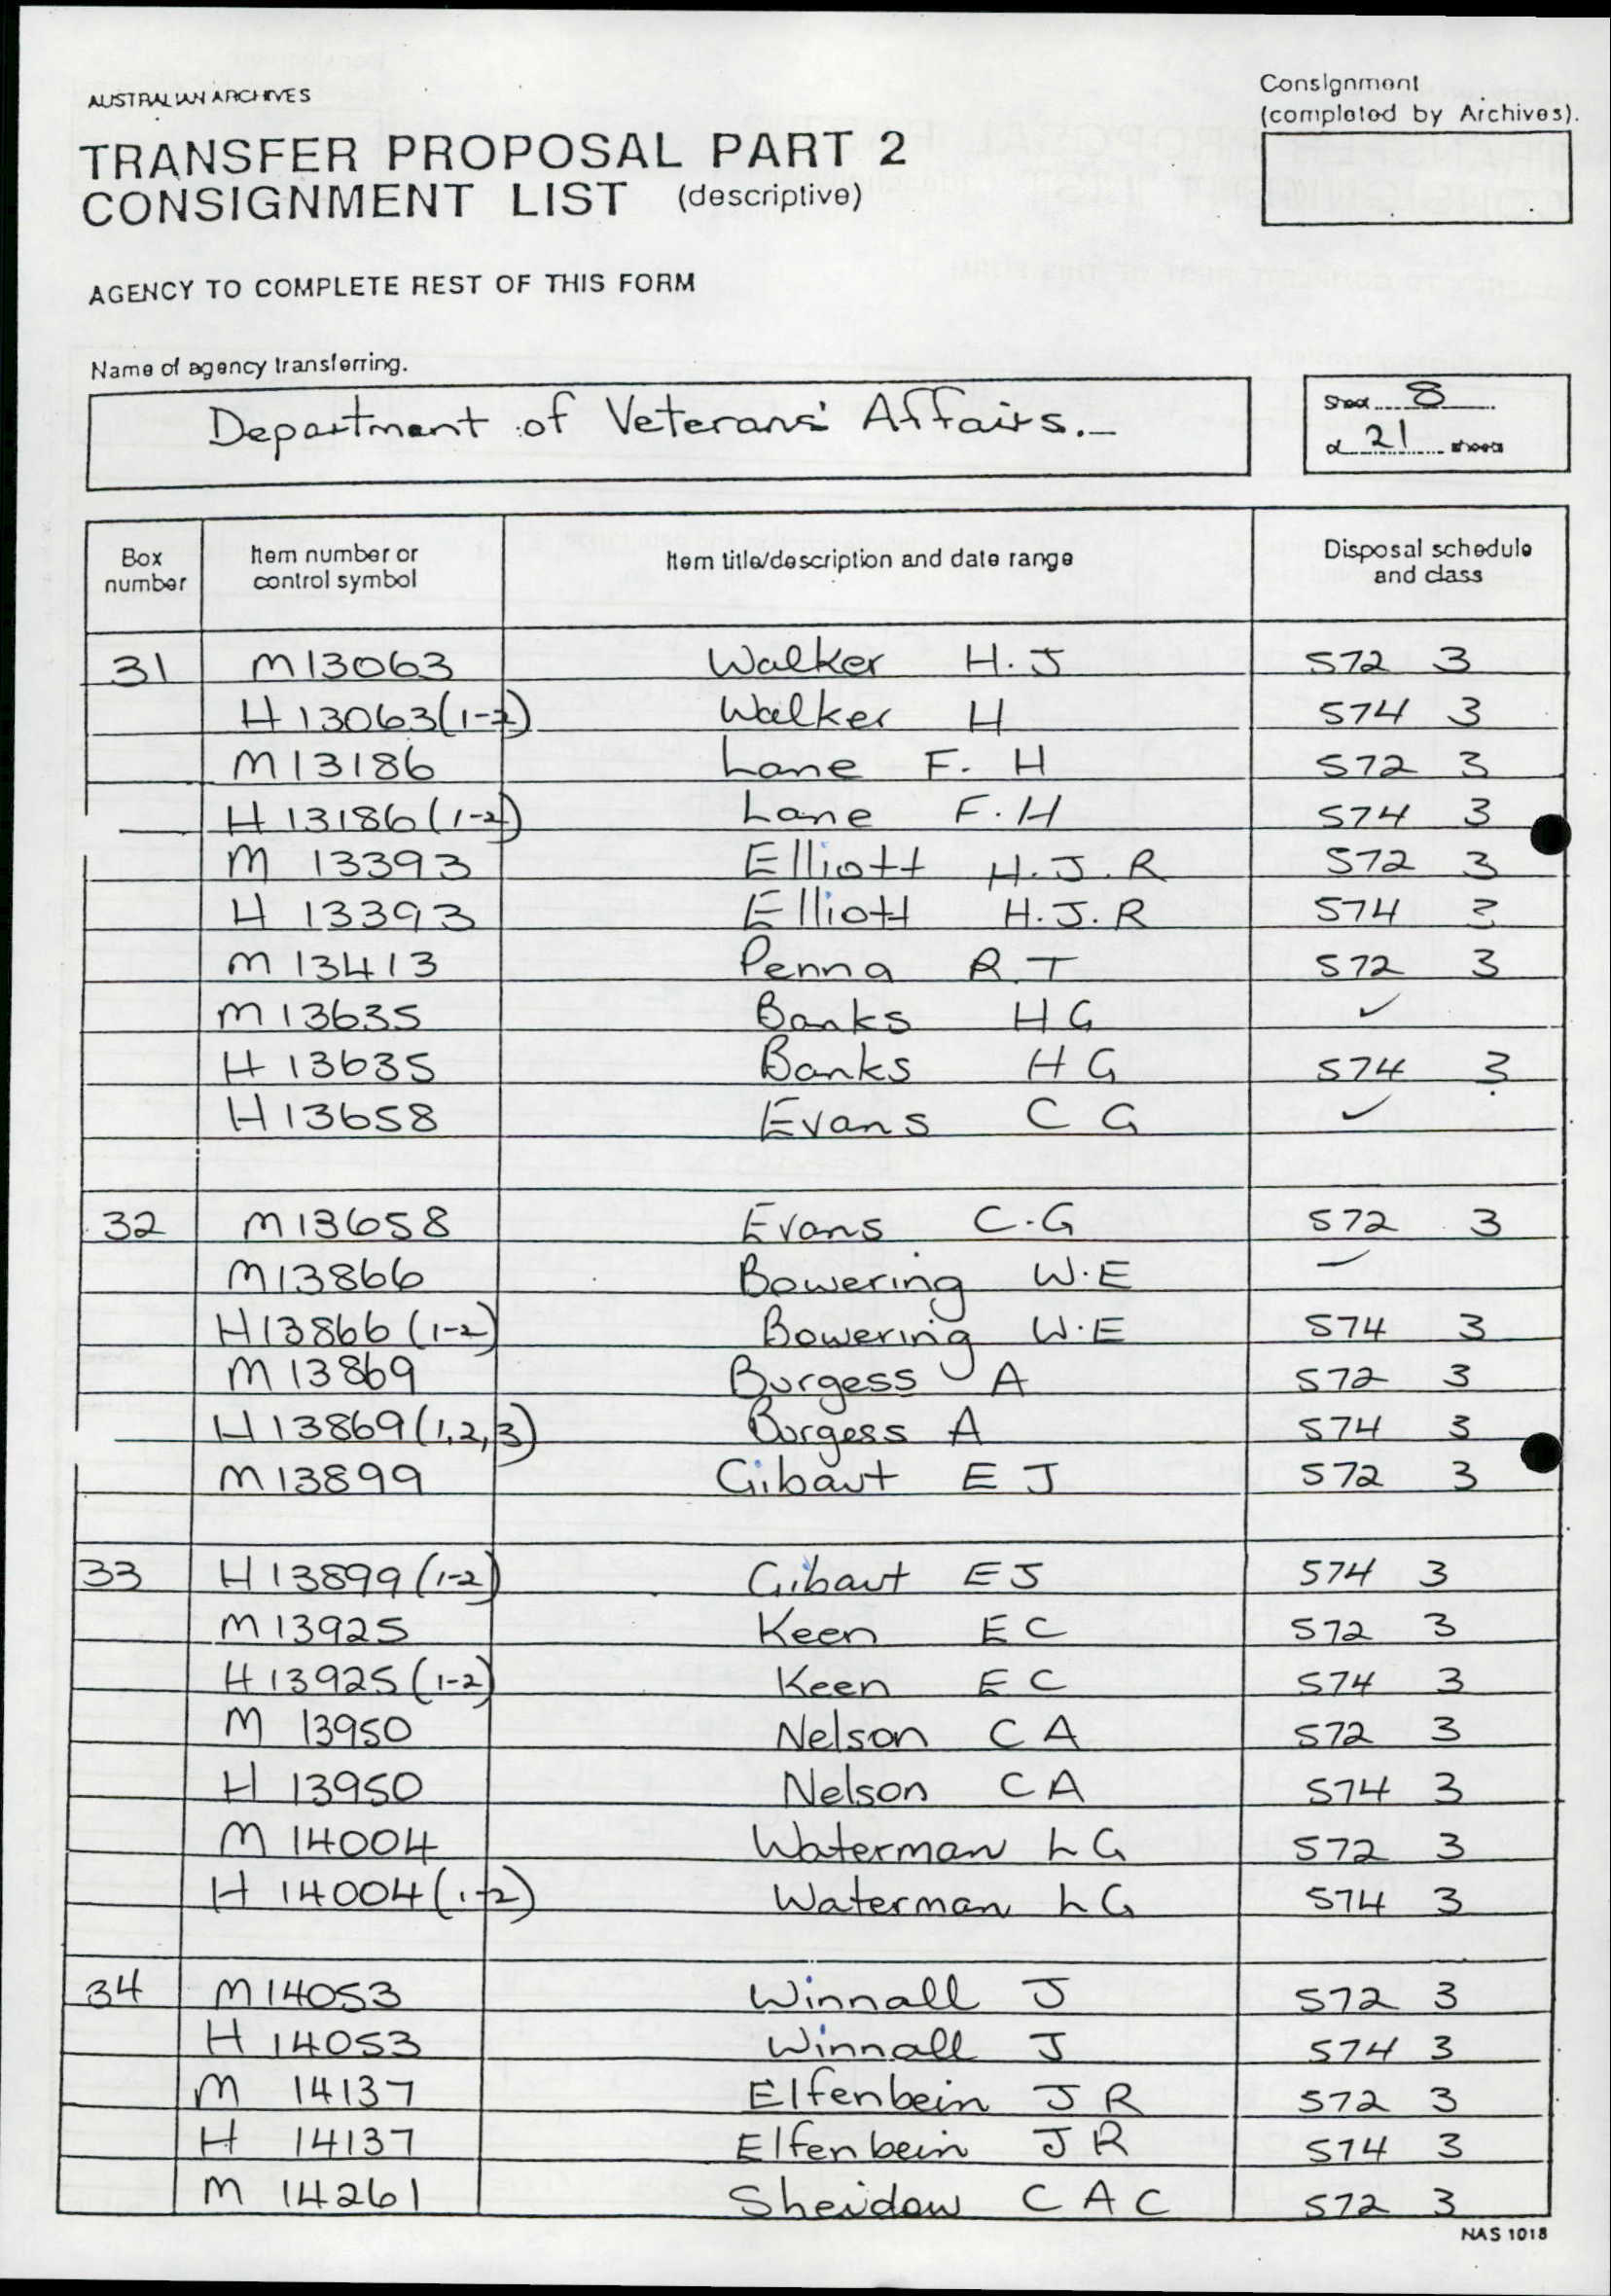 Consignment
(completed by Archives).
AUSTRALIAN ARCHIVES
TRANSFER PROPOSAL PART 2
CONSIGNMENT LIST (descriptive)
AGENCY TO COMPLETE REST OF THIS FORM
Name of agency transferring.
Department of Veterans' Affairs.
Sheet 8
of 21 sheets
Box number Item number or control symbol Item title/description and date range Disposal schedule and class
31 M13063 Walker H.J 572 3
H13063(1-2) Walker H 574 3
M13186 Lane F. H 572 3
H13186(1-2) Lane F.H 574 3
M 13393 Elliott H.J.R 572 3
H 13393 Elliott H.J.R 574 3
M13413 Penna R.T 572 3
M13635 Banks HG ✓
H 13635 Banks HG 574 3
H13658 Evans C G ✓
32 M13658 Evans C.G 572 3
M13866 Bowering W.E ✓
H13866(1-2) Bowering W.E 574 3
M 13869 Burgess A 572 3
H13869(1,2,3) Burgess A 574 3
M13899 Gibaut E J 572 3
33 H13899(1-2) Gibaut EJ 574 3
M13925 Keen EC 572 3
H13925(1-2) Keen EC 574 3
M 13950 Nelson C A 572 3
H 13950 Nelson CA 574 3
M 14004 Waterman L G 572 3
H 14004(1-2) Waterman L G 574 3
34 M14053 Winnall J 572 3
H 14053 Winnall J 574 3
M 14137 Elfenbein J R 572 3
H 14137 Elfenbein J R 574 3
M 14261 C A C 572 3
NAS 1018